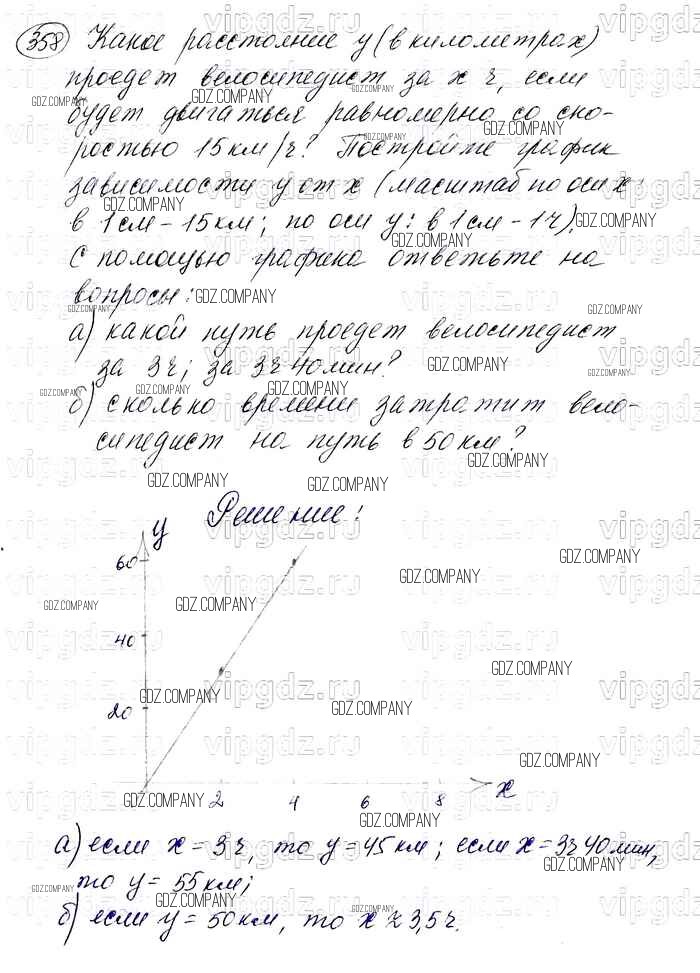 358 Какое расстояние y (в километрах)
проедет велосипедист за x ч, если
будет двигаться равномерно со ско-
ростью 15 км/ч? Постройте график
зависимости y от x (масштаб по оси x:
в 1 см - 15 км; по оси y: в 1 см - 1 ч).
С помощью графика ответьте на
вопросы:
а) какой путь проедет велосипедист
за 3ч; за 3ч 40мин?
б) сколько времени затратит вело-
сипедист на путь в 50 км?
Решение:
y
60
40
20
2 4 6 8 x
а) если x = 3ч, то y = 45 км; если x = 3ч 40мин,
то y = 55 км;
б) если y = 50 км, то x ≈ 3,5 ч.
GDZ.COMPANY
vipgdz.ru